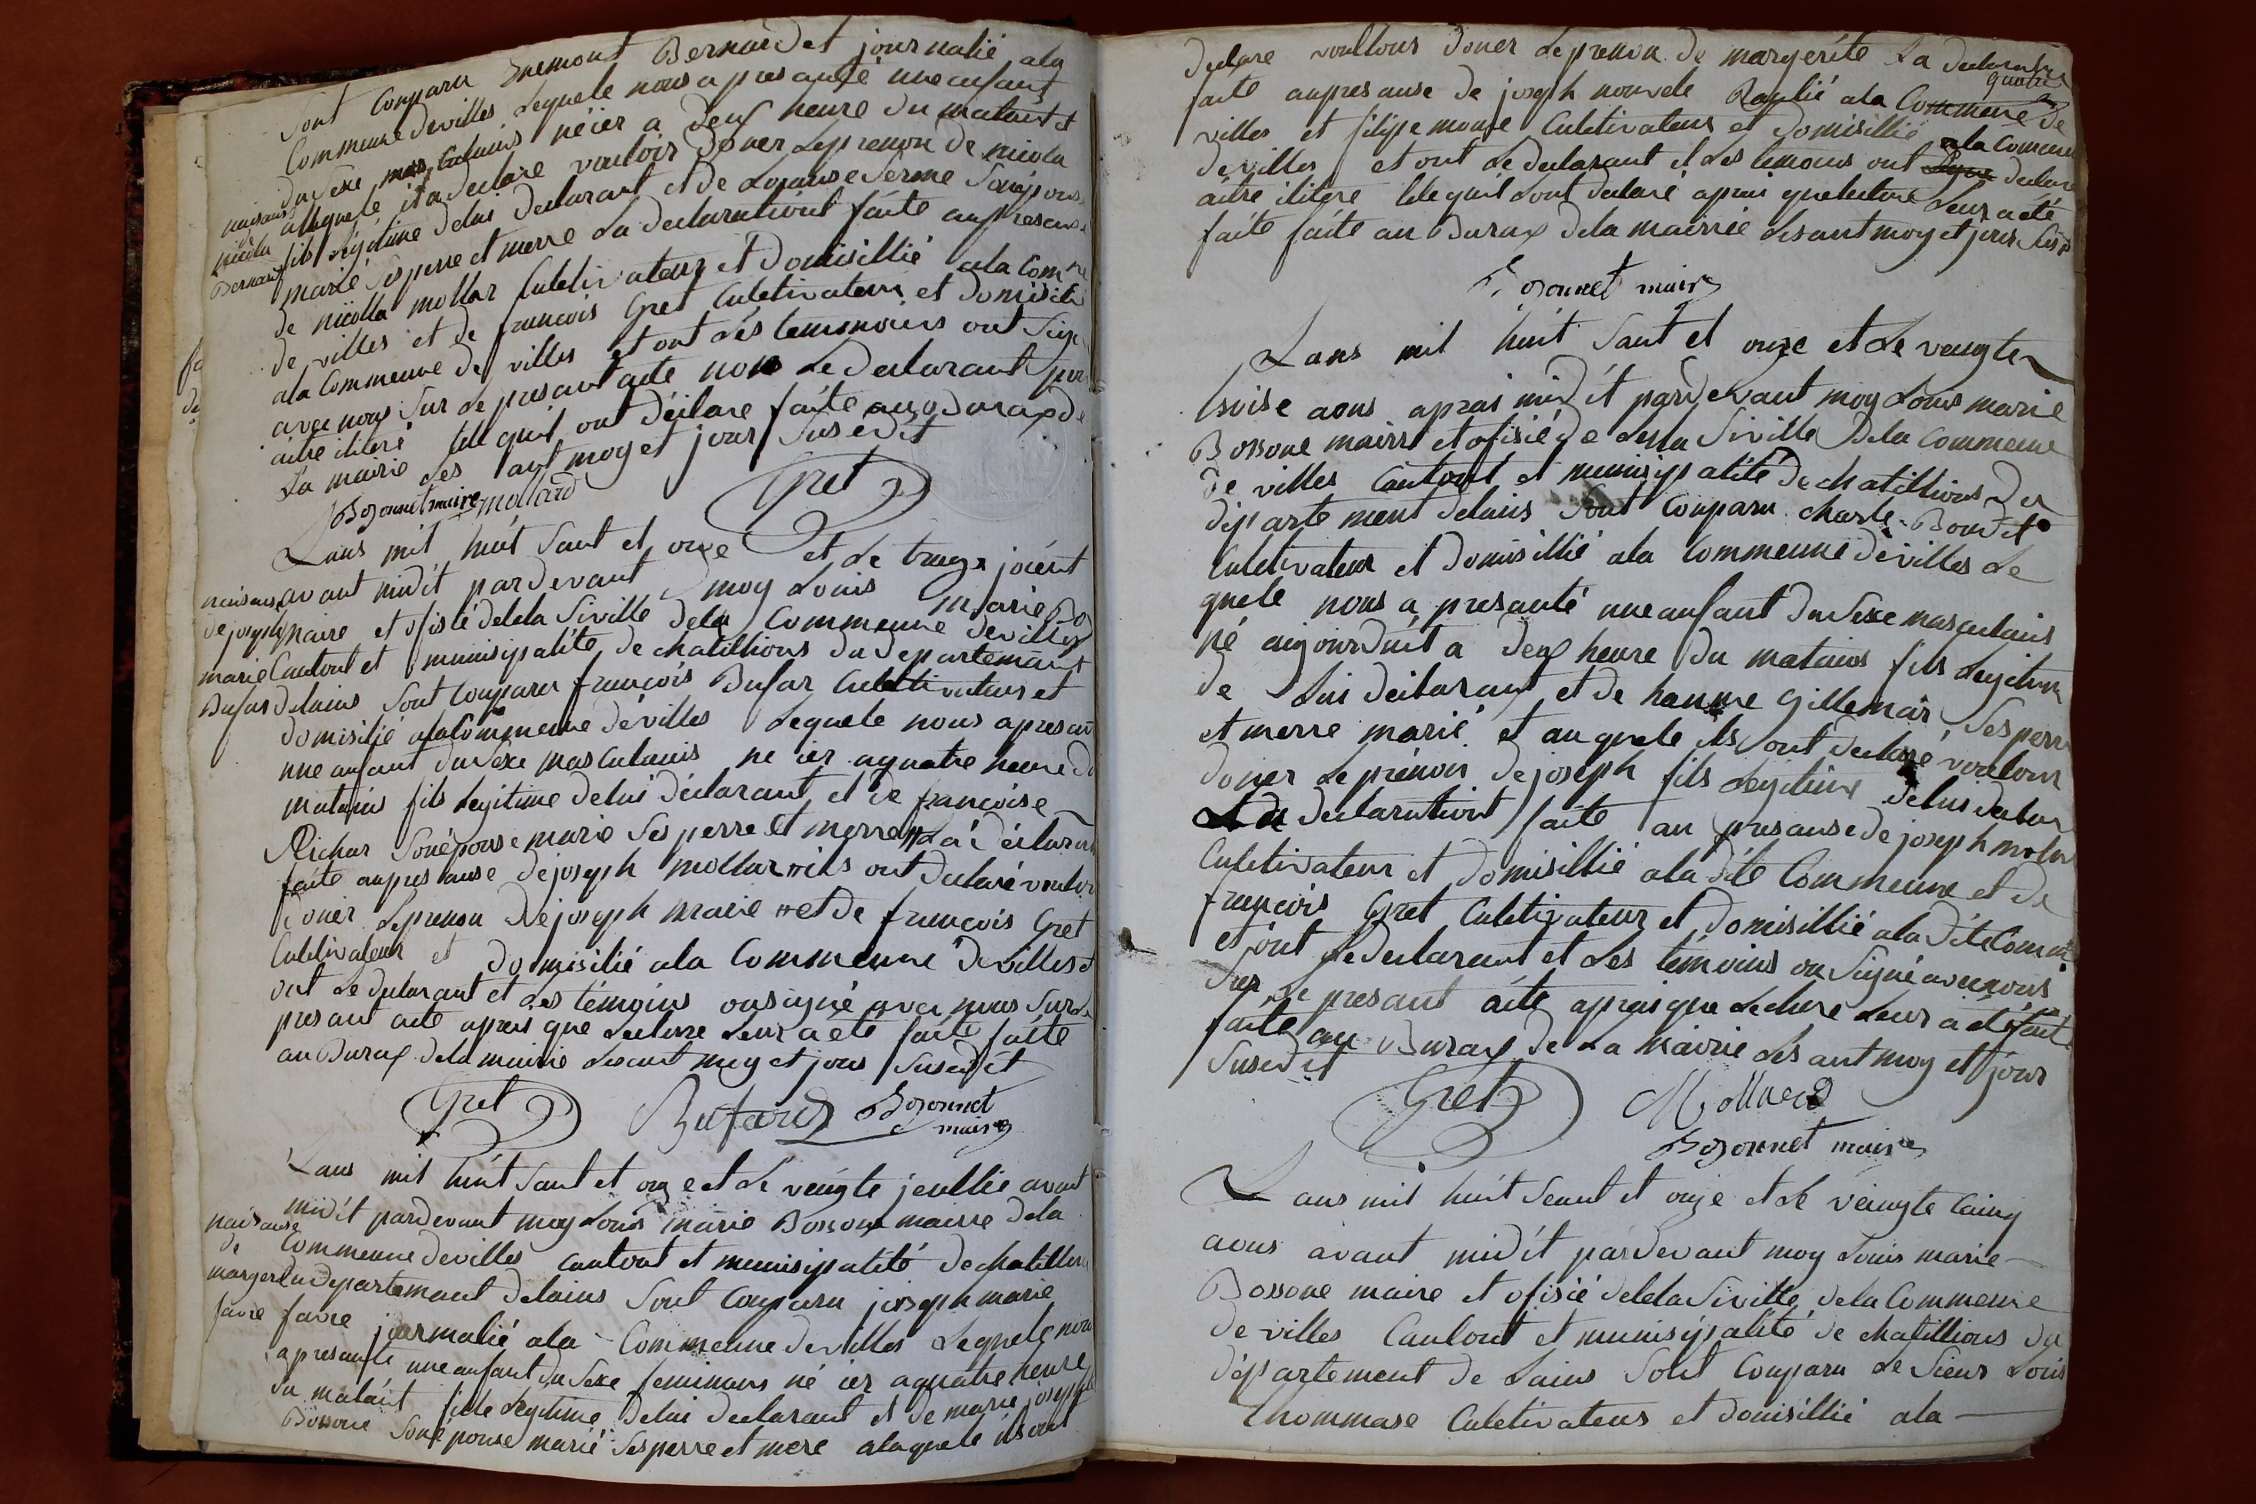 Sont Conparu Enemont Bernardet journalié ala
Commeune devilles Lequele nous a presanté une anfant
du Sexe mas Culains né ier a deux heure du matant et
naisans
nicola
Bernard
alaquele ila declare vouloir doner Leprenon de nicola
fils Légitime delui declarant et de Lojanse Serene Sonépous
marié Ses perre et merre La declarationt faite aupresans
de nicolla mollar Culetivateur et domisillié ala Comne
de villes et de francois Gret Culetivateur et domisilié
ala Commeune de villes et ont Les temmoins ont Signe
avec nous Sur Le presant acte non Le declarant pour
aitre iliteré tele quil ont déclare faite au buraux de
La mairie Les ant moy et jour Susedit
Bozonnet maire mollard Gret
Lans mil huit Sant et onze et Le traize joient
avant midit pardevant moy Louis marie Bo
naisans
de joseph
marie
Bufar
maire et ofisié delela Siville dela Commeune devilles
Cantont et munisipalité de chatillions du departemant
delains Sont Conparu françois Bufar Culetivateur et
domisilié ala Commeune dévilles Lequele nous apresan
une anfant du Sexe mas Culains né ier aquatre heure du
matains fils Legitime delui déclarant et de francoise
Richar Sonépouse marié Ses perre et merre # La déclarat
faite aupres anse de joseph mollar # ils ont declaré voulor
doner Leprenon de joseph marie # et de françois Gret
Culetivateur et domisilié ala Commeune devilles et
ont Le declarant et Les témoins onsigné avec nous Sur Le
presant acte aprais que Lecture Leur a été faite faite
au Burax dela mairie Lesant moy et jour Susedit
Gret Bufard Bozonnet
maire
Lans mil huit Sant et onze et Le veingte jeullié avant
midit pardevant moy Louis marie Bossone mairre dela
naisanse
de
margerite
favre
Commeune devilles cantont et munisipalité dechatillion
du departemant delains Sont Conparu joseph marie
favre journalié ala Commeune devilles Lequele nou
a presanté une anfant du Sexe feminins né ier aquatre heure
du mataint fiele Légitime delui declarant et de marie joseph
Bossone Sonépouse marié Ses perre et mere alaquele ils ont
declare voullour doner Leprenon de margerite La declaration
faite aupres anse de joseph nouvele Raplié ala Commeune de
villes et filipe monse Culetivateur et domisillié ala Comeune
devilles et ont Le declarant et Les temoins ont Signe declare
aitre ilitere tele quil Sont declaré aprais quelecture Leur a été
faite faite au Burax dela mairrie Lesant moy et jour Suse
Bozonnet maire
Lans mil huit Sant et onze et Le veingte
troise aous aprais midit pardevant moy Louis marie
Bossone mairre et ofisié de Lela Siville dela Commeune
de villes Cantont et munisipalité de chatillions du
departement delains Sont Conparu charle Boudit
Culetivateur et domisillié ala Commeune dévilles Le
quele nous a presanté une anfant du Sexe masculains
né aujourduit a deux heure du matains fils Legitime
de Lui déclarant et de hanne Gillemar Ses perre
et merre marié et au quele ils ont declaré vouloir
doner Leprénon de joseph fils Legitime delui declar
La declarationt faite au presanse de joseph molar
Culetivateur et domisillié ala dite Commeune et de
françois Gret Culetivateur et domisillié ala dite Comeune
et ont Le declarant et Les témoins on Signé avec nous
Sur Le presant acte aprais que Lecture Leur a été faite
faite au Burax de La mairie Les ant moy et jour
Susedit
Gret Mollard
Bozonnet maire
Lans mil huit Seant et onze et Le veingte Cainq
aous avant midit pardevant moy Louis marie
Bossone maire et ofisié delela Siville dela Commeune
de villes Cantont et munisipalité de chatillions du
département de Lains Sont Conparu Le Sieur Louis
Thommase Culetivateur et domisillié ala